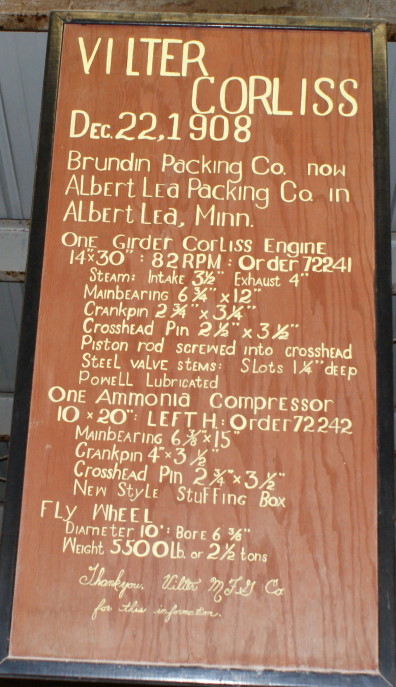 VILTER
CORLISS
DEC. 22, 1908
Brundin Packing Co. now
Albert Lea Packing Co. in
Albert Lea, Minn.
One Girder Corliss Engine
14"x30" : 82 RPM : Order 72241
Steam: Intake 3½" Exhaust 4"
Mainbearing 6¾" x 12"
Crankpin 2¾" x 3¼"
Crosshead Pin 2½" x 3½"
Piston rod screwed into crosshead
Steel valve stems: Slots 1¼" deep
Powell Lubricated
One Ammonia Compressor
10 x 20": LEFT H: Order 72242
Mainbearing 6⅜" x 15"
Crankpin 4" x 3½"
Crosshead Pin 2¾" x 3½"
New Style Stuffing Box
Fly Wheel
Diameter 10': Bore 6⅜"
Weight 5500 Lb. or 2½ tons
Thankyou, Vilter MFG Co
for this information.